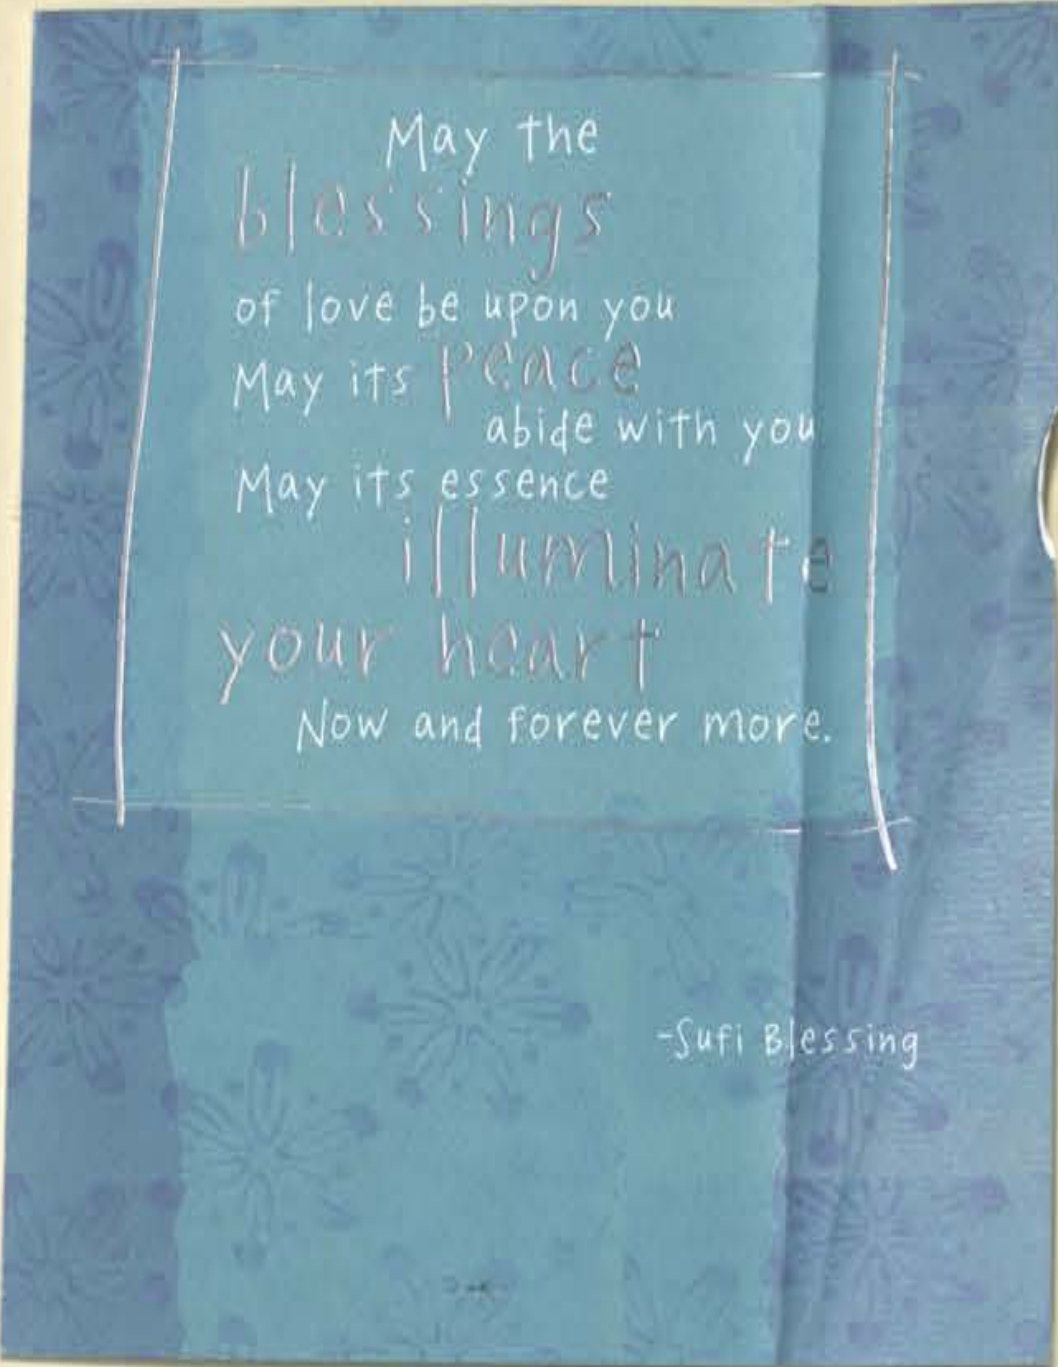 May the
blessings
of love be upon you
May its peace
abide with you
May its essence
illuminate
your heart
Now and forever more.
-Sufi Blessing